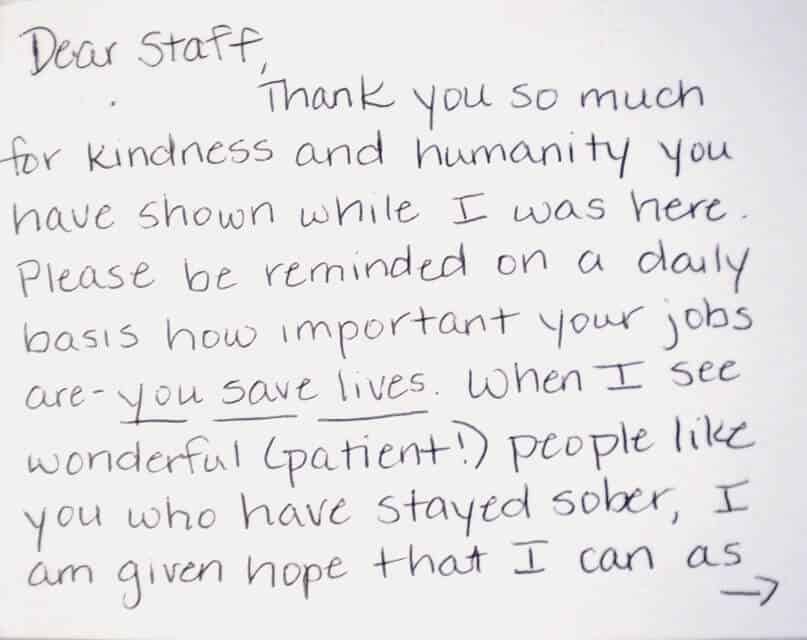 Dear Staff,
Thank you so much
for kindness and humanity you
have shown while I was here.
Please be reminded on a daily
basis how important your jobs
are - you save lives. When I see
wonderful (patient!) people like
you who have stayed sober, I
am given hope that I can as
→